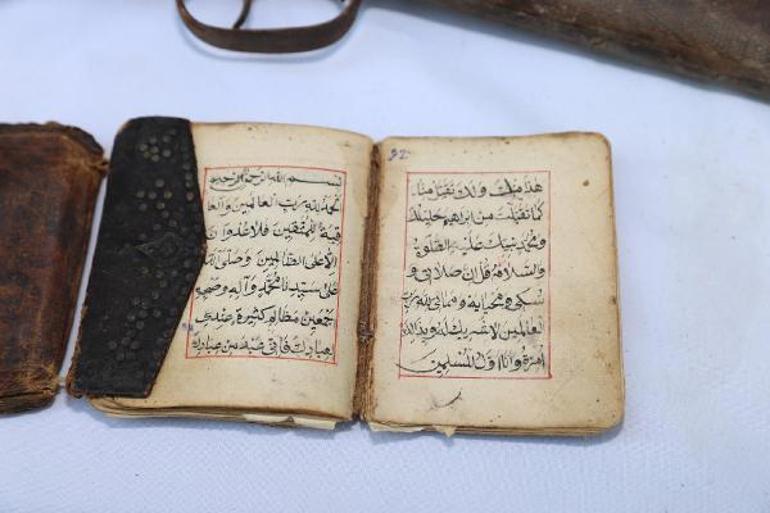 92
هذ منك ولك تقبل منا
كما تقبلت من ابراهيم خليلك
ومحمد نبيك عليه الصلوة
والسلام قل ان صلاتي و
نسكي ومحيايه ومماتي لله رب
العالمين لا شريك له وبذالك
امرة وانا اول المسلمين
بسم الله الرحمن الرحيم
الحمد لله رب العالمين والعا
قبة للمتقين فلا عدوان
الا على الظالمين وصلى الله
على سيدنا محمد وآله وصحبه
جمعين مظالم كثيرة عندي
لعبادك فاي عبد من عبادك